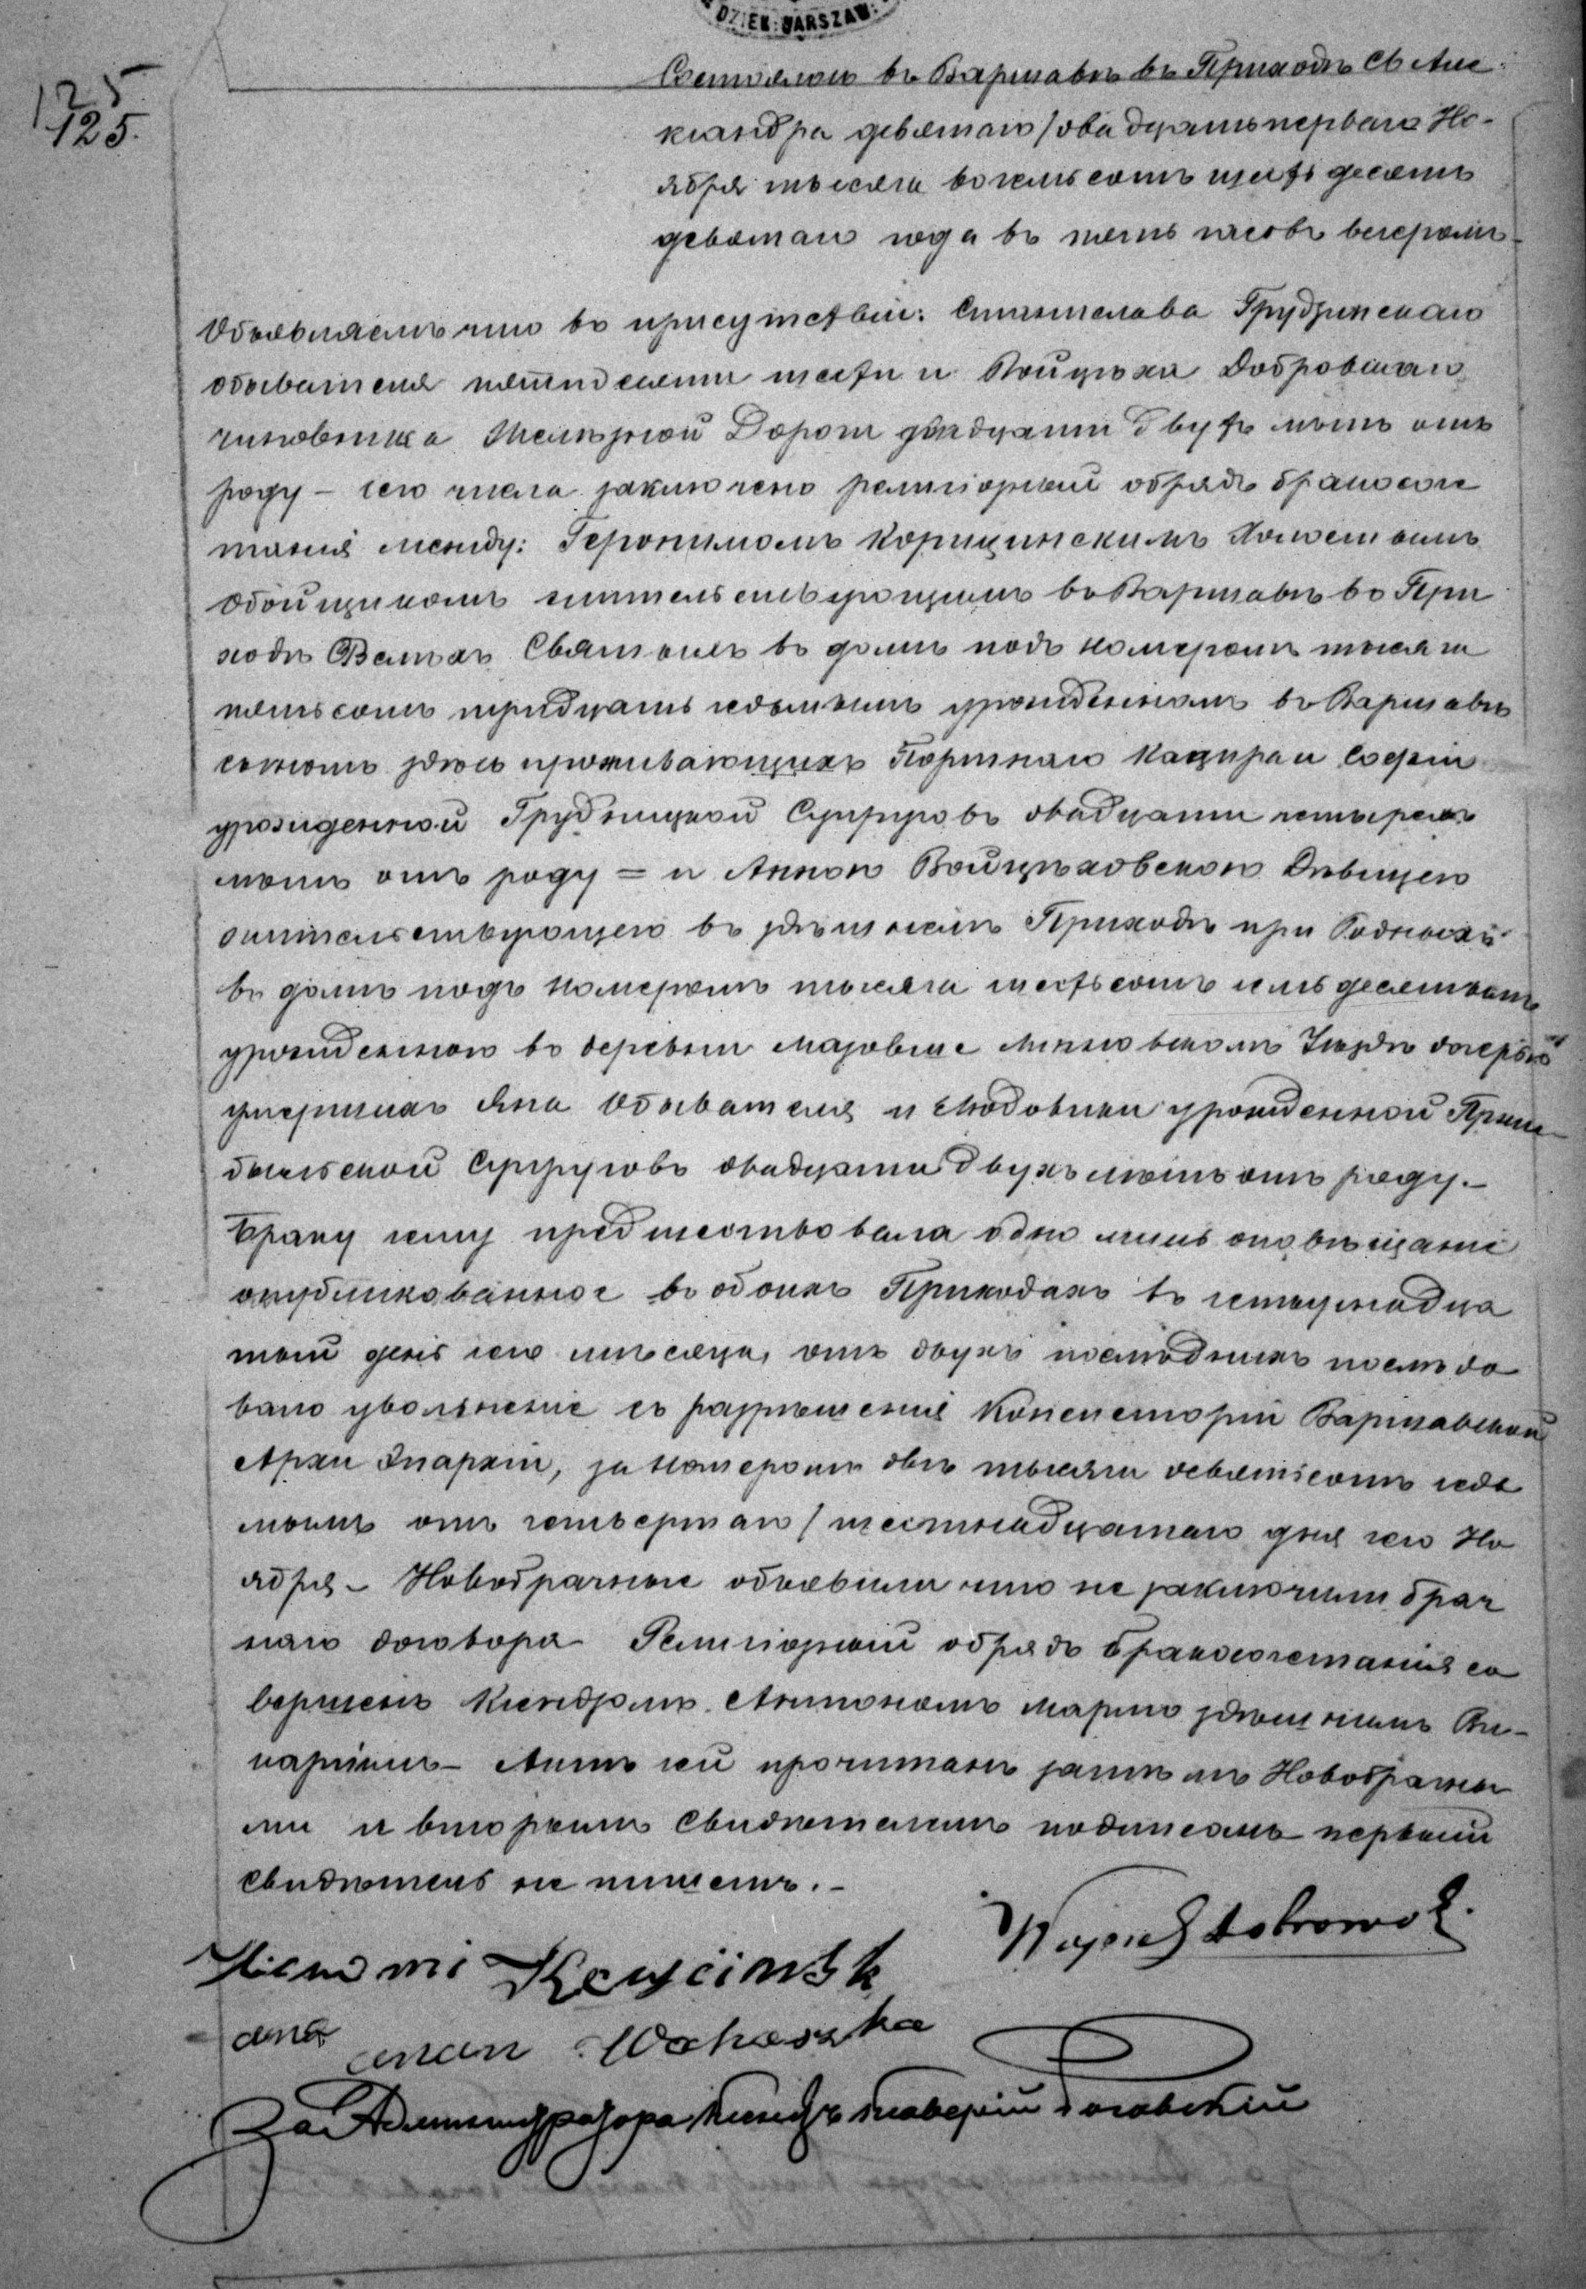 DZIEK: WARSZAW:
125
125.
Состоялось въ Варшавѣ въ Приходѣ Св Але
ксандра девятаго / двадцать перваго Но-
ября тысяча восемьсотъ шестьдесятъ
девятаго года въ пять часовъ вечеромъ –
Объявляемъ что въ присутствіи: Станислава Грудзинскаго
обывателя пятидесяти шести и Войцѣха Добровскаго
чиновника Желѣзной Дороги двадцати двухъ лѣтъ отъ
роду – сего числа заключено религіозный обрядъ бракосоче
танія между: Геронимомъ Корицинскимъ Холостымъ
Обойщикомъ жительствующимъ въ Варшавѣ въ При
ходѣ Всѣхъ Святыхъ въ домѣ подъ номеромъ тысяча
пятьсотъ тридцать седьмымъ урожденномъ въ Варшавѣ
сыномъ здѣсь проживающихъ Портнаго Каспра и Софіи
урожденной Грудницкой Супруговъ двадцати четырехъ
лѣтъ отъ роду = и Анною Войцѣховскою Дѣвицею
жительствующею въ здѣшнемъ Приходѣ при Родныхъ
въ домѣ подъ номеромъ тысяча шестьсотъ семьдесятымъ
урожденною въ деревни Мазовше Уѣздѣ дочерью
умершихъ Яна Обывателя и Людовики урожденной Пржи
быльской Супруговъ двадцати двухъ лѣтъ отъ роду. –
Браку сему предшествовала одно лишь оповѣщаніе
опубликованное въ обоихъ Приходахъ въ четырнадца
тый день сего мѣсяца, отъ двухъ послѣднихъ послѣдо
вало увольненіе съ разрѣшенія Консисторіи Варшавской
Архи Эпархіи, за номеромъ двѣ тысячи девятьсотъ седь
мымъ отъ четвертаго / шестнадцатаго дня сего Но
ября – Новобрачные объявили что не заключили брач
наго договора – Религіозный обрядъ бракосочетанія со
вершенъ Ксендзомъ Антономъ здѣшнимъ Ви-
каріимъ – Актъ сей прочитанъ затѣмъ Новобрачны
ми и вторымъ Свидѣтелемъ подписанъ первый
свидѣтель не пишетъ. –
Wojciech Dobrowol.
Hieronim
ana anan
За Администратора Ксендзъ Ксаверій